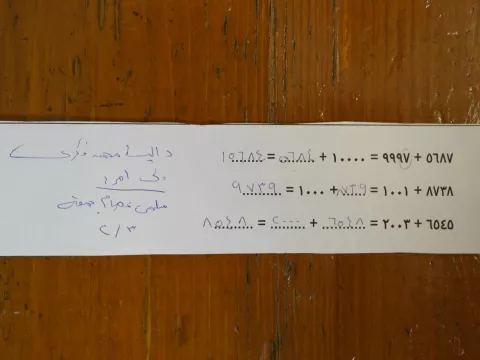 ٥٦٨٧ + ٩٩٩٧ = ١٠٠٠٠ + ٥٦٨٤ = ١٥٦٨٤
٨٧٣٨ + ١٠٠١ = ٨٧٣٩ + ١٠٠٠ = ٩٧٣٩
٦٥٤٥ + ٢٠٠٣ = ٦٥٤٨ + ٢٠٠٠ = ٨٥٤٨
داليا محمد فكري
سلمى عصام جمعة
٣/٢